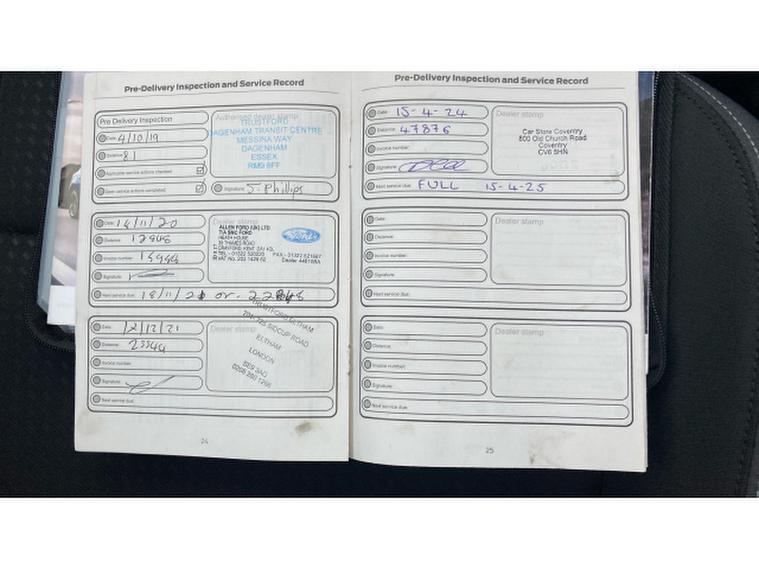 Pre-Delivery Inspection and Service Record
Pre Delivery Inspection
Date: 4/10/19
Distance: 81
Applicable service actions checked
Open service actions completed
Authorised dealer stamp
TRUSTFORD
DAGENHAM TRANSIT CENTRE
MESSINA WAY
DAGENHAM
ESSEX
RM9 6FF
Signature: J. Phillips
Date: 14/11/20
Distance: 12848
Invoice number:
Signature:
Next service due: 18/11/21 or
Dealer stamp
ALLEN FORD (UK) LTD
T/A SMC FORD
HEATH HOUSE
THAMES ROAD
CRAYFORD, KENT DA1 4QL
Ford
Date: 12/12/21
Distance: 23544
Invoice number:
Signature:
Next service due:
Dealer stamp
TRUSTFORD ELTHAM
SIDCUP ROAD
ELTHAM
LONDON
SE9 3AQ
24
Pre-Delivery Inspection and Service Record
Date: 15-4-24
Distance: 47876
Invoice number:
Signature:
Next service due: FULL 15-4-25
Dealer stamp
Car Store Coventry
800 Old Church Road
Coventry
CV6 5HN
Date:
Distance:
Invoice number:
Signature:
Next service due:
Dealer stamp
Date:
Distance:
Invoice number:
Signature:
Next service due:
Dealer stamp
25